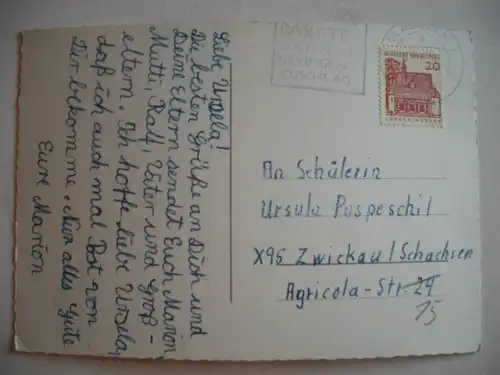 Liebe Ursula!
Die besten Grüße an Dich und
Deine Eltern sendet Euch Marion,
Mutti, Ralf, Vater und Groß-
eltern. Ich hoffe liebe Ursula,
daß ich auch mal Post von
Dir bekomme. Nun alles Gute
Eure Marion
PAKETE
ZUSCHLAG
DEUTSCHE BUNDESPOST
20
An Schülerin
Ursula Pospeschil
X95 Zwickau / Schachsen
Agricola-Str. 24
15